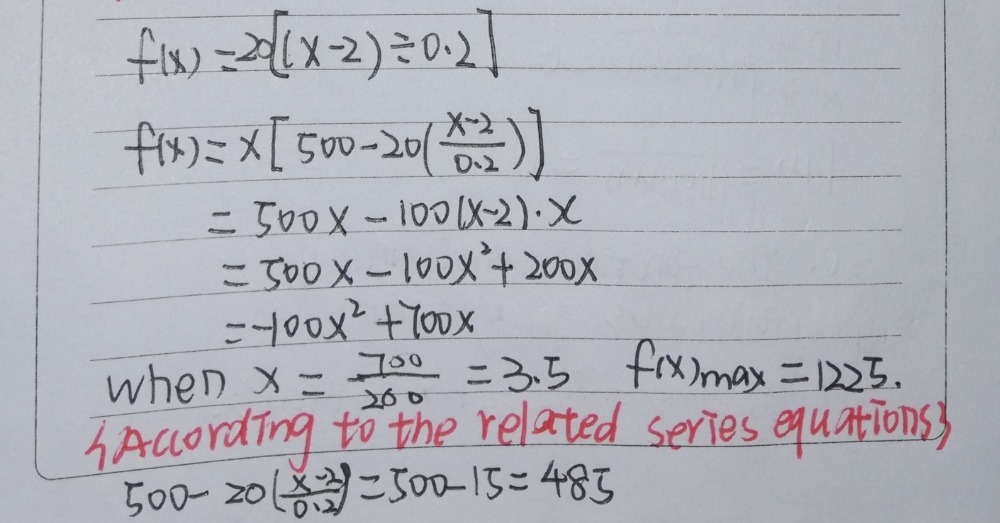 f(x) = 20[(x-2)÷0.2]
f(x) = x[500-20(\frac{x-2}{0.2})]
= 500x - 100(x-2)·x
= 500x - 100x² + 200x
= -100x² + 700x
when x = \frac{700}{200} = 3.5 f(x)max = 1225.
{According to the related series equations}
500 - 20(\frac{x-2}{0.2}) = 500 - 15 = 485